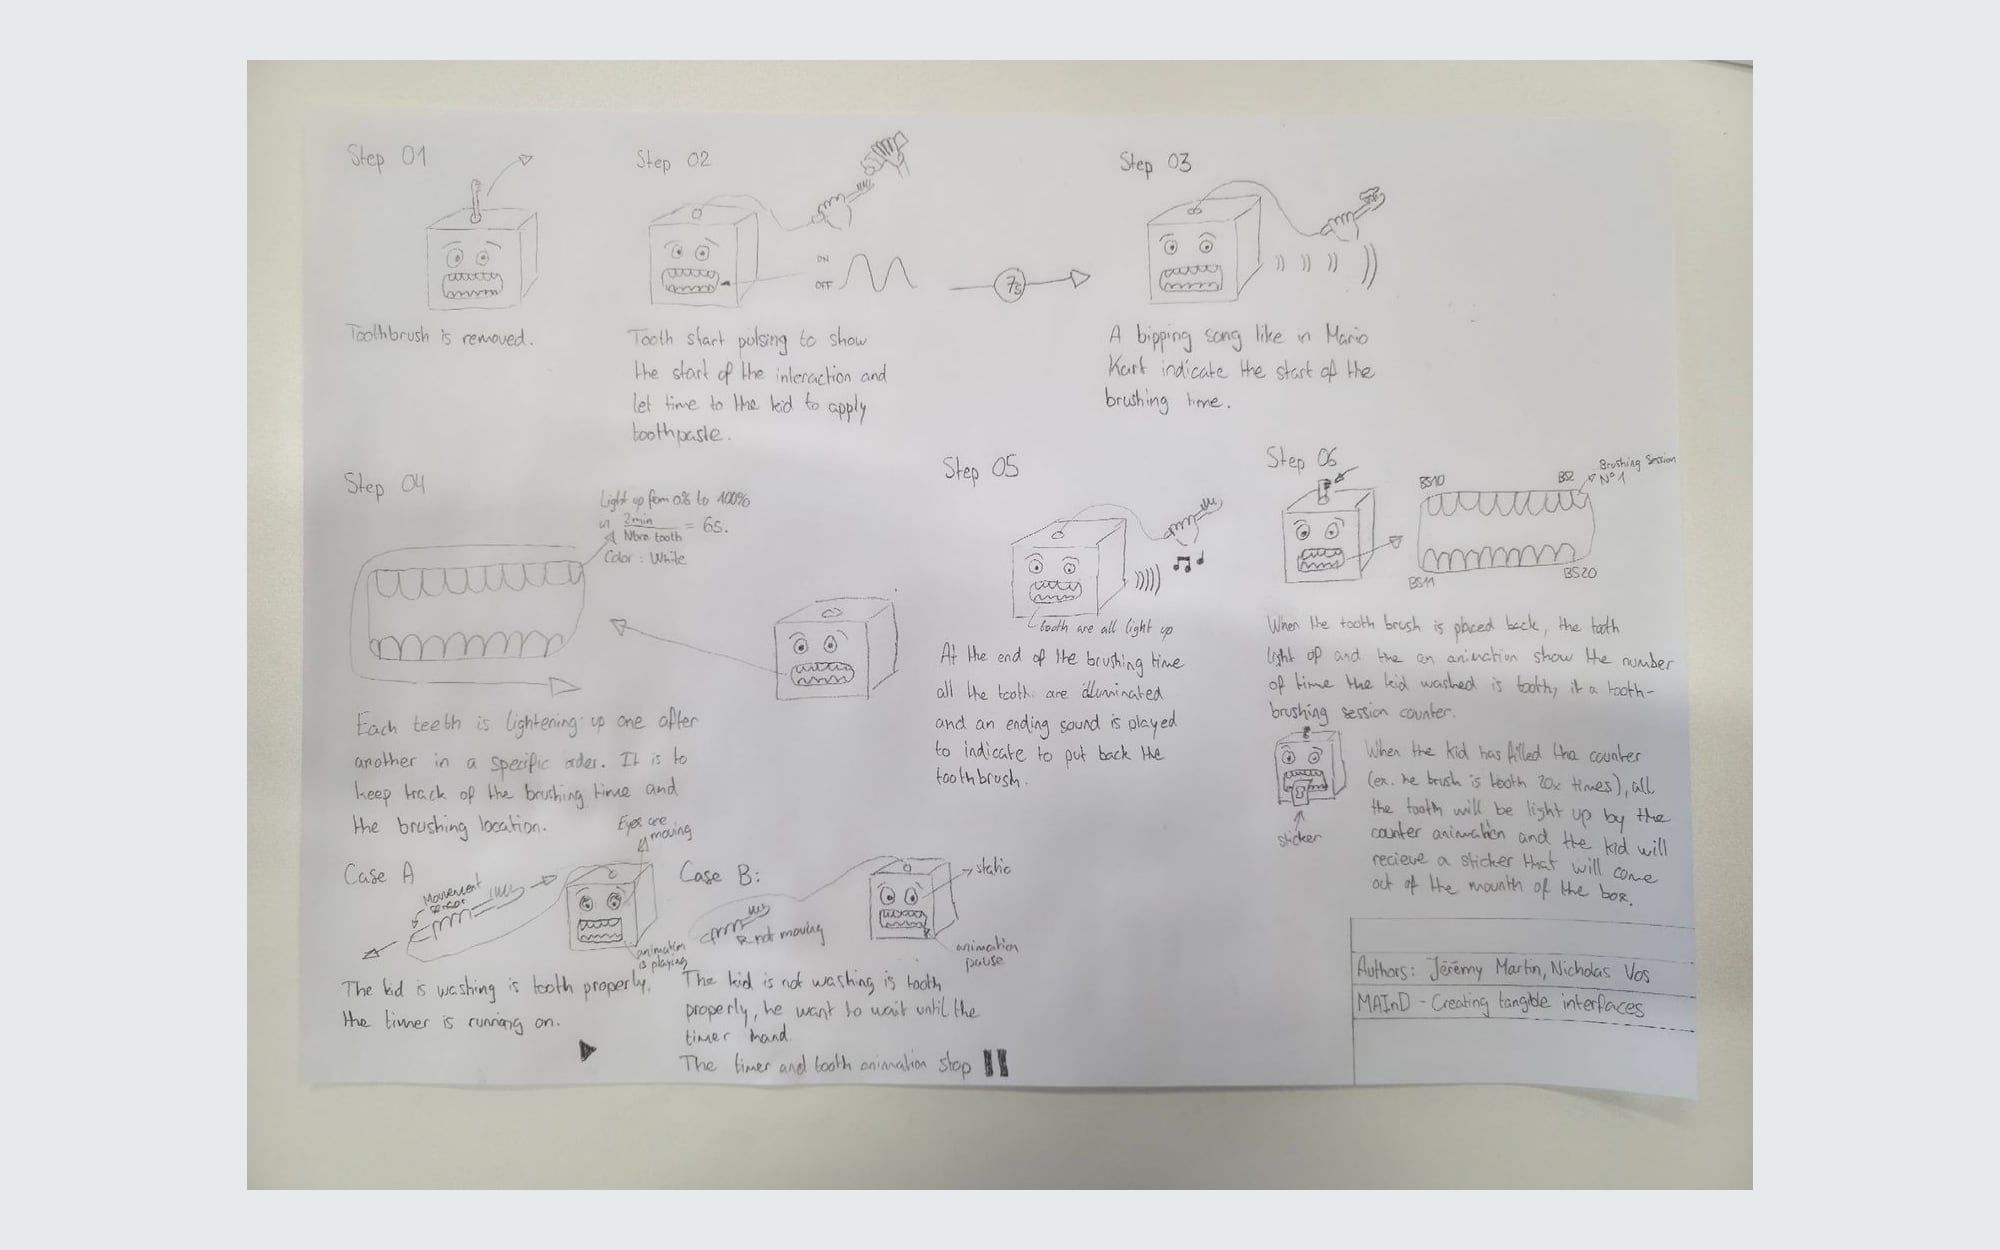 Step 01
Toothbrush is removed.
Step 02
ON
OFF
7s
Tooth start pulsing to show
the start of the interaction and
let time to the kid to apply
toothpaste.
Step 03
A bipping song like in Mario
Kart indicate the start of the
brushing time.
Step 04
Light up from 0% to 100%
in 2min
Nbre tooth
= 6s.
Color : White
Each teeth is lightening up one after
another in a specific order. It is to
keep track of the brushing time and
the brushing location.
Case A
Movement
sensor
Eyes are
moving
animation
is playing
The kid is washing is tooth properly,
the timer is running on.
Case B:
not moving
static
animation
pause
The kid is not washing is tooth
properly, he want to wait until the
timer
The timer and tooth animation stop
Step 05
tooth are all light up
At the end of the brushing time
all the tooth are illuminated
and an ending sound is played
to indicate to put back the
toothbrush.
Step 06
BS10
BS2
Brushing Session
N°1
BS11
BS20
When the tooth brush is placed back, the tooth
light up and the an animation show the number
of time the kid washed is tooth, it a tooth-
brushing session counter.
sticker
When the kid has filled the counter
(ex. he brush is tooth 20x times), all
the tooth will be light up by the
counter animation and the kid will
recieve a sticker that will come
out of the mounth of the box.
Authors: Jérémy Martin, Nicholas Vos
MAInD - Creating tangible interfaces